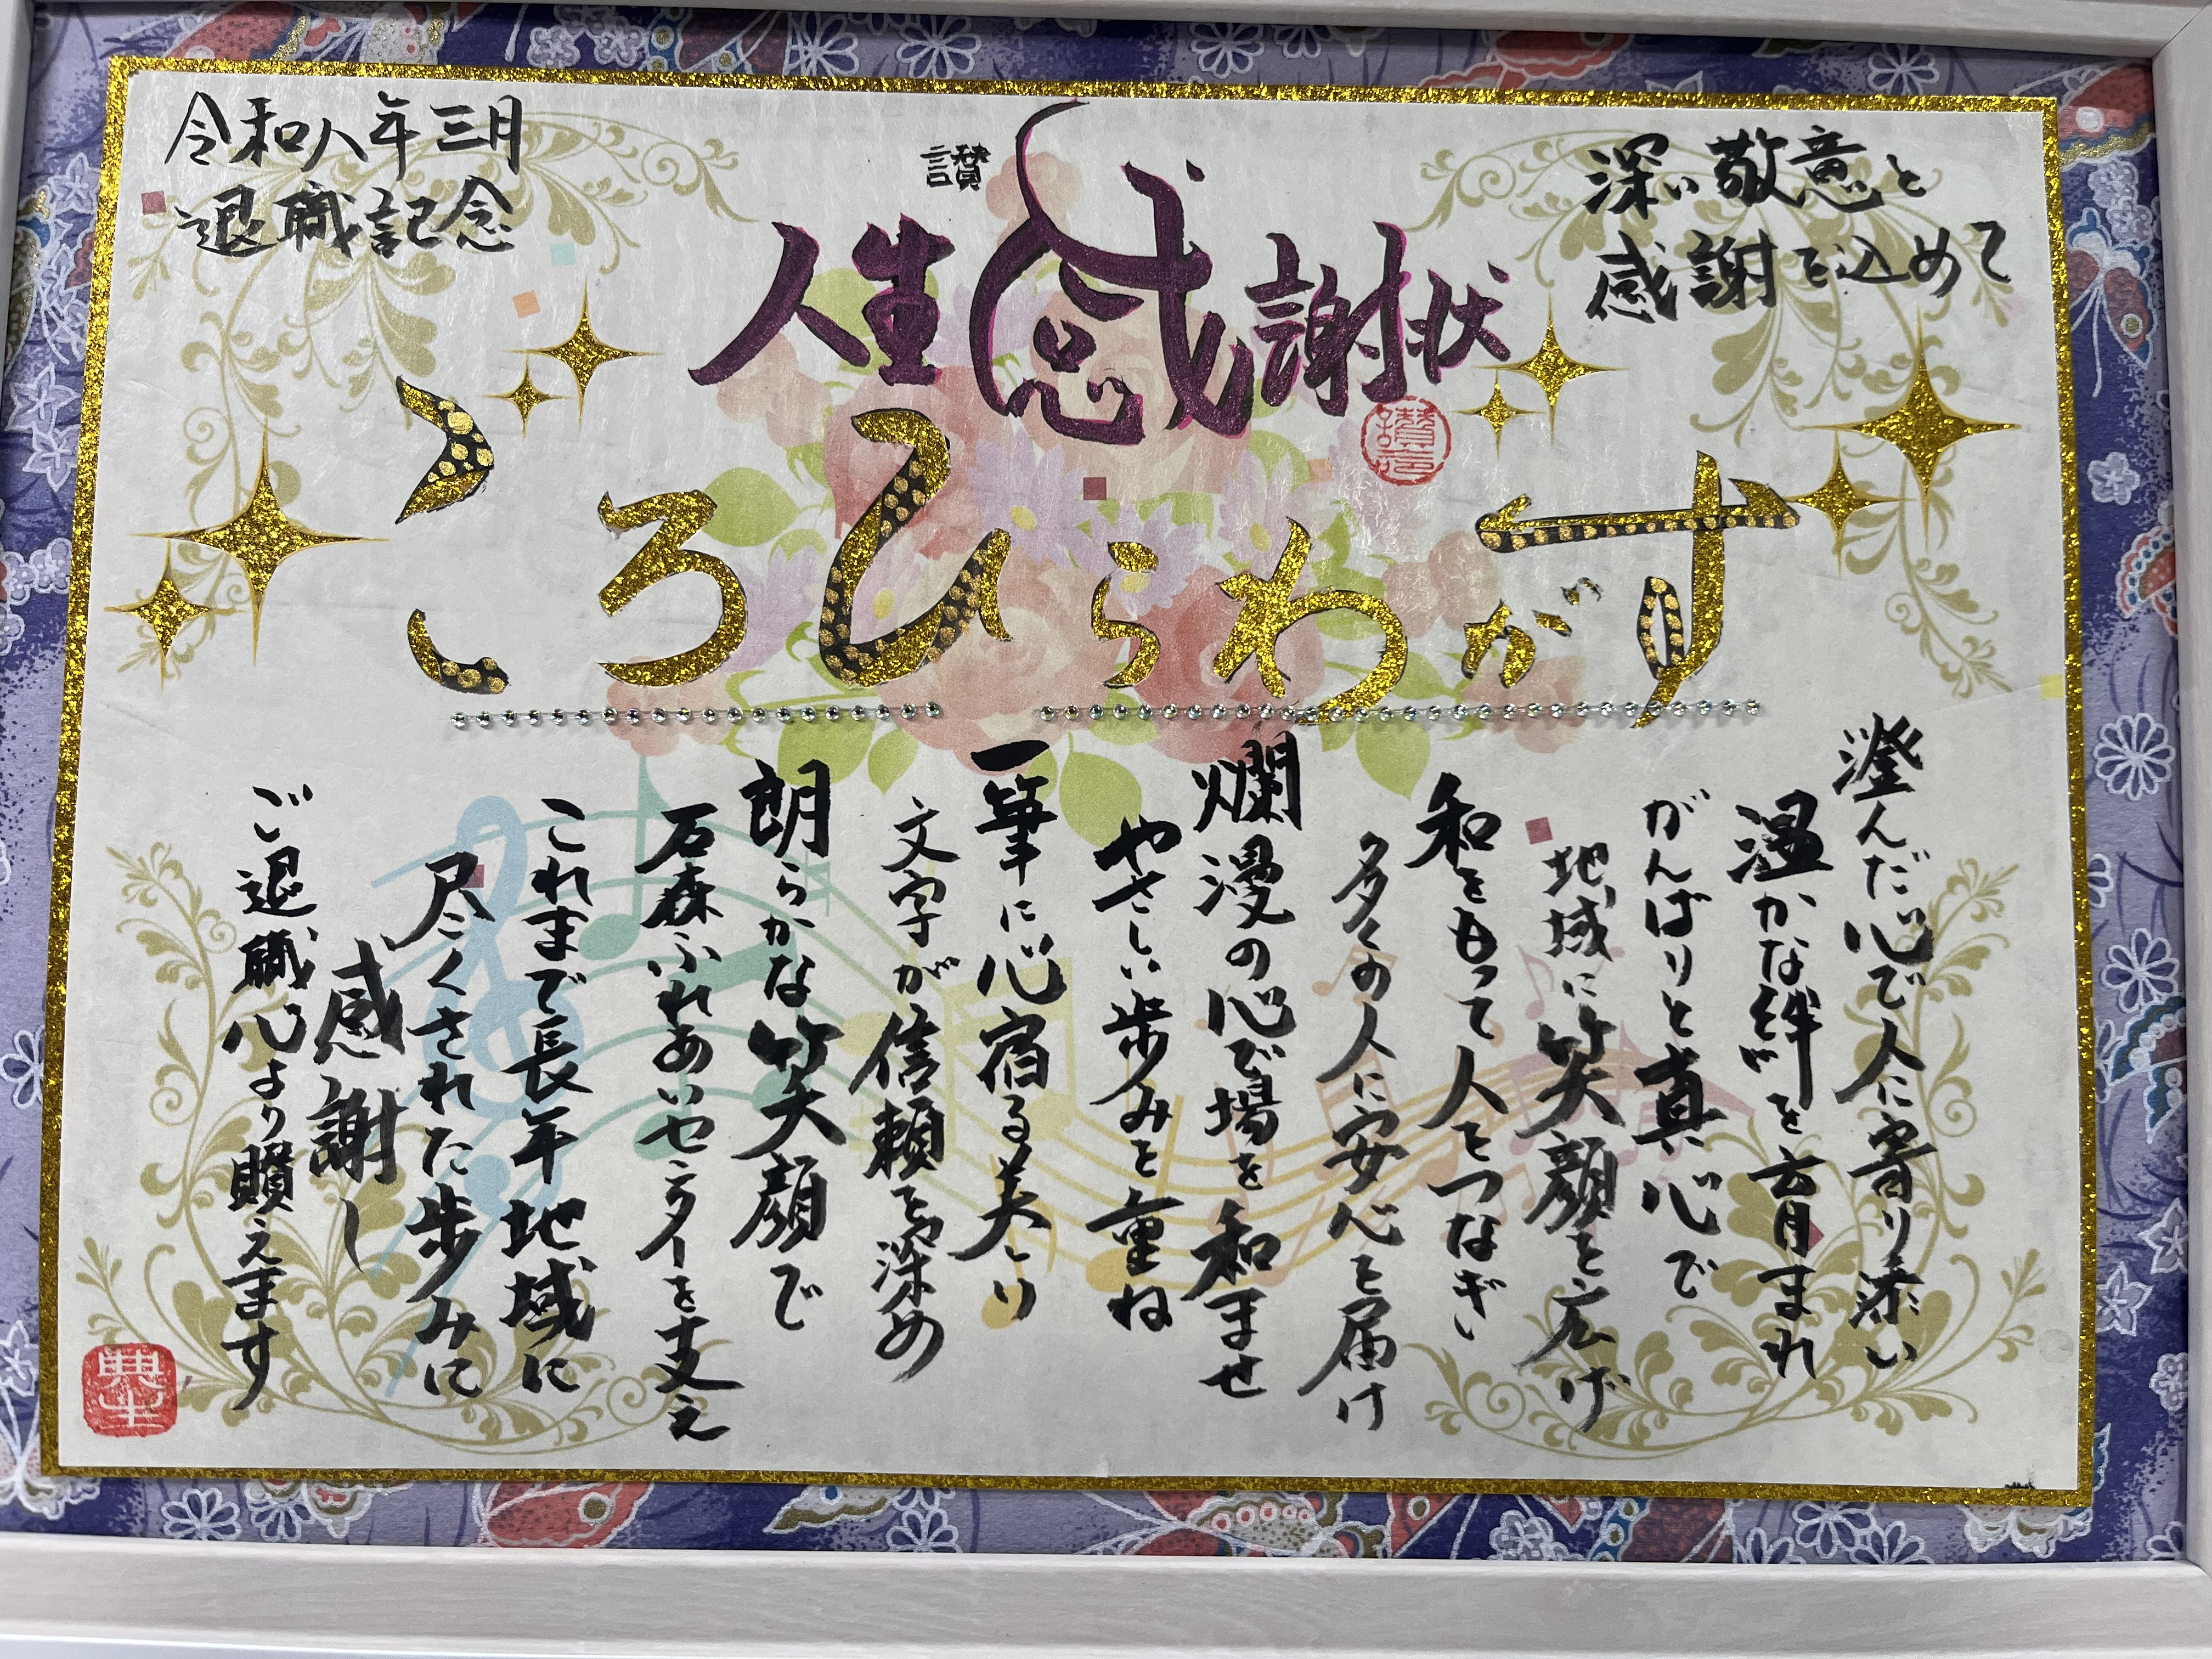 深い敬意と
感謝を込めて
讃
人生感謝状
令和八年三月
退職記念
すがわらひろこ
澄んだ心で人に寄り添い
温かな絆を育まれ
がんばりと真心で
地域に笑顔を広げ
和をもって人をつなぎ
多くの人に安心を届け
爛漫の心で場を和ませ
やさしい歩みを重ね
一筆に心宿る美あり
文字が信頼を深め
朗らかな笑顔で
石森ふれあいセンターを支え
これまで長年地域に
尽くされた歩みに
感謝し
ご退職心より贈えます
典生